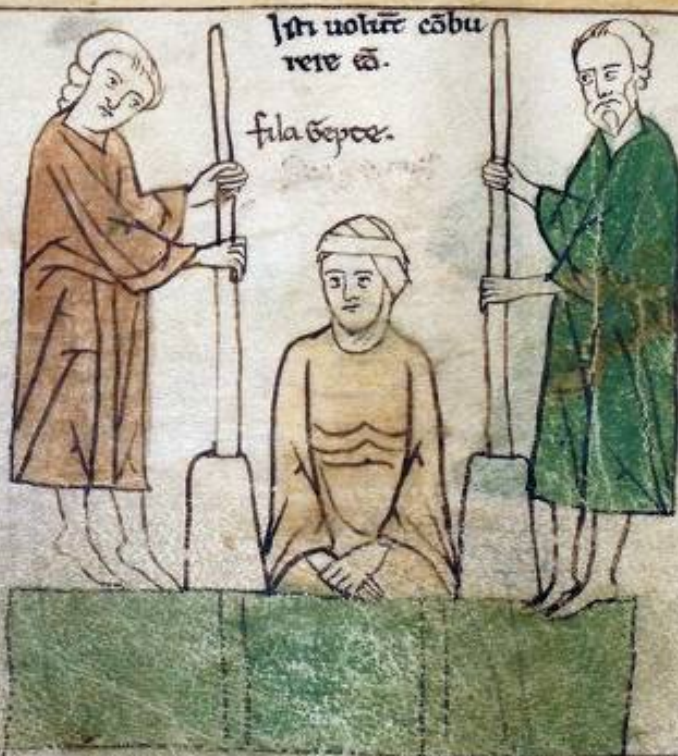 Isti uolūt cōbu
rere eā.
fila Gepte.